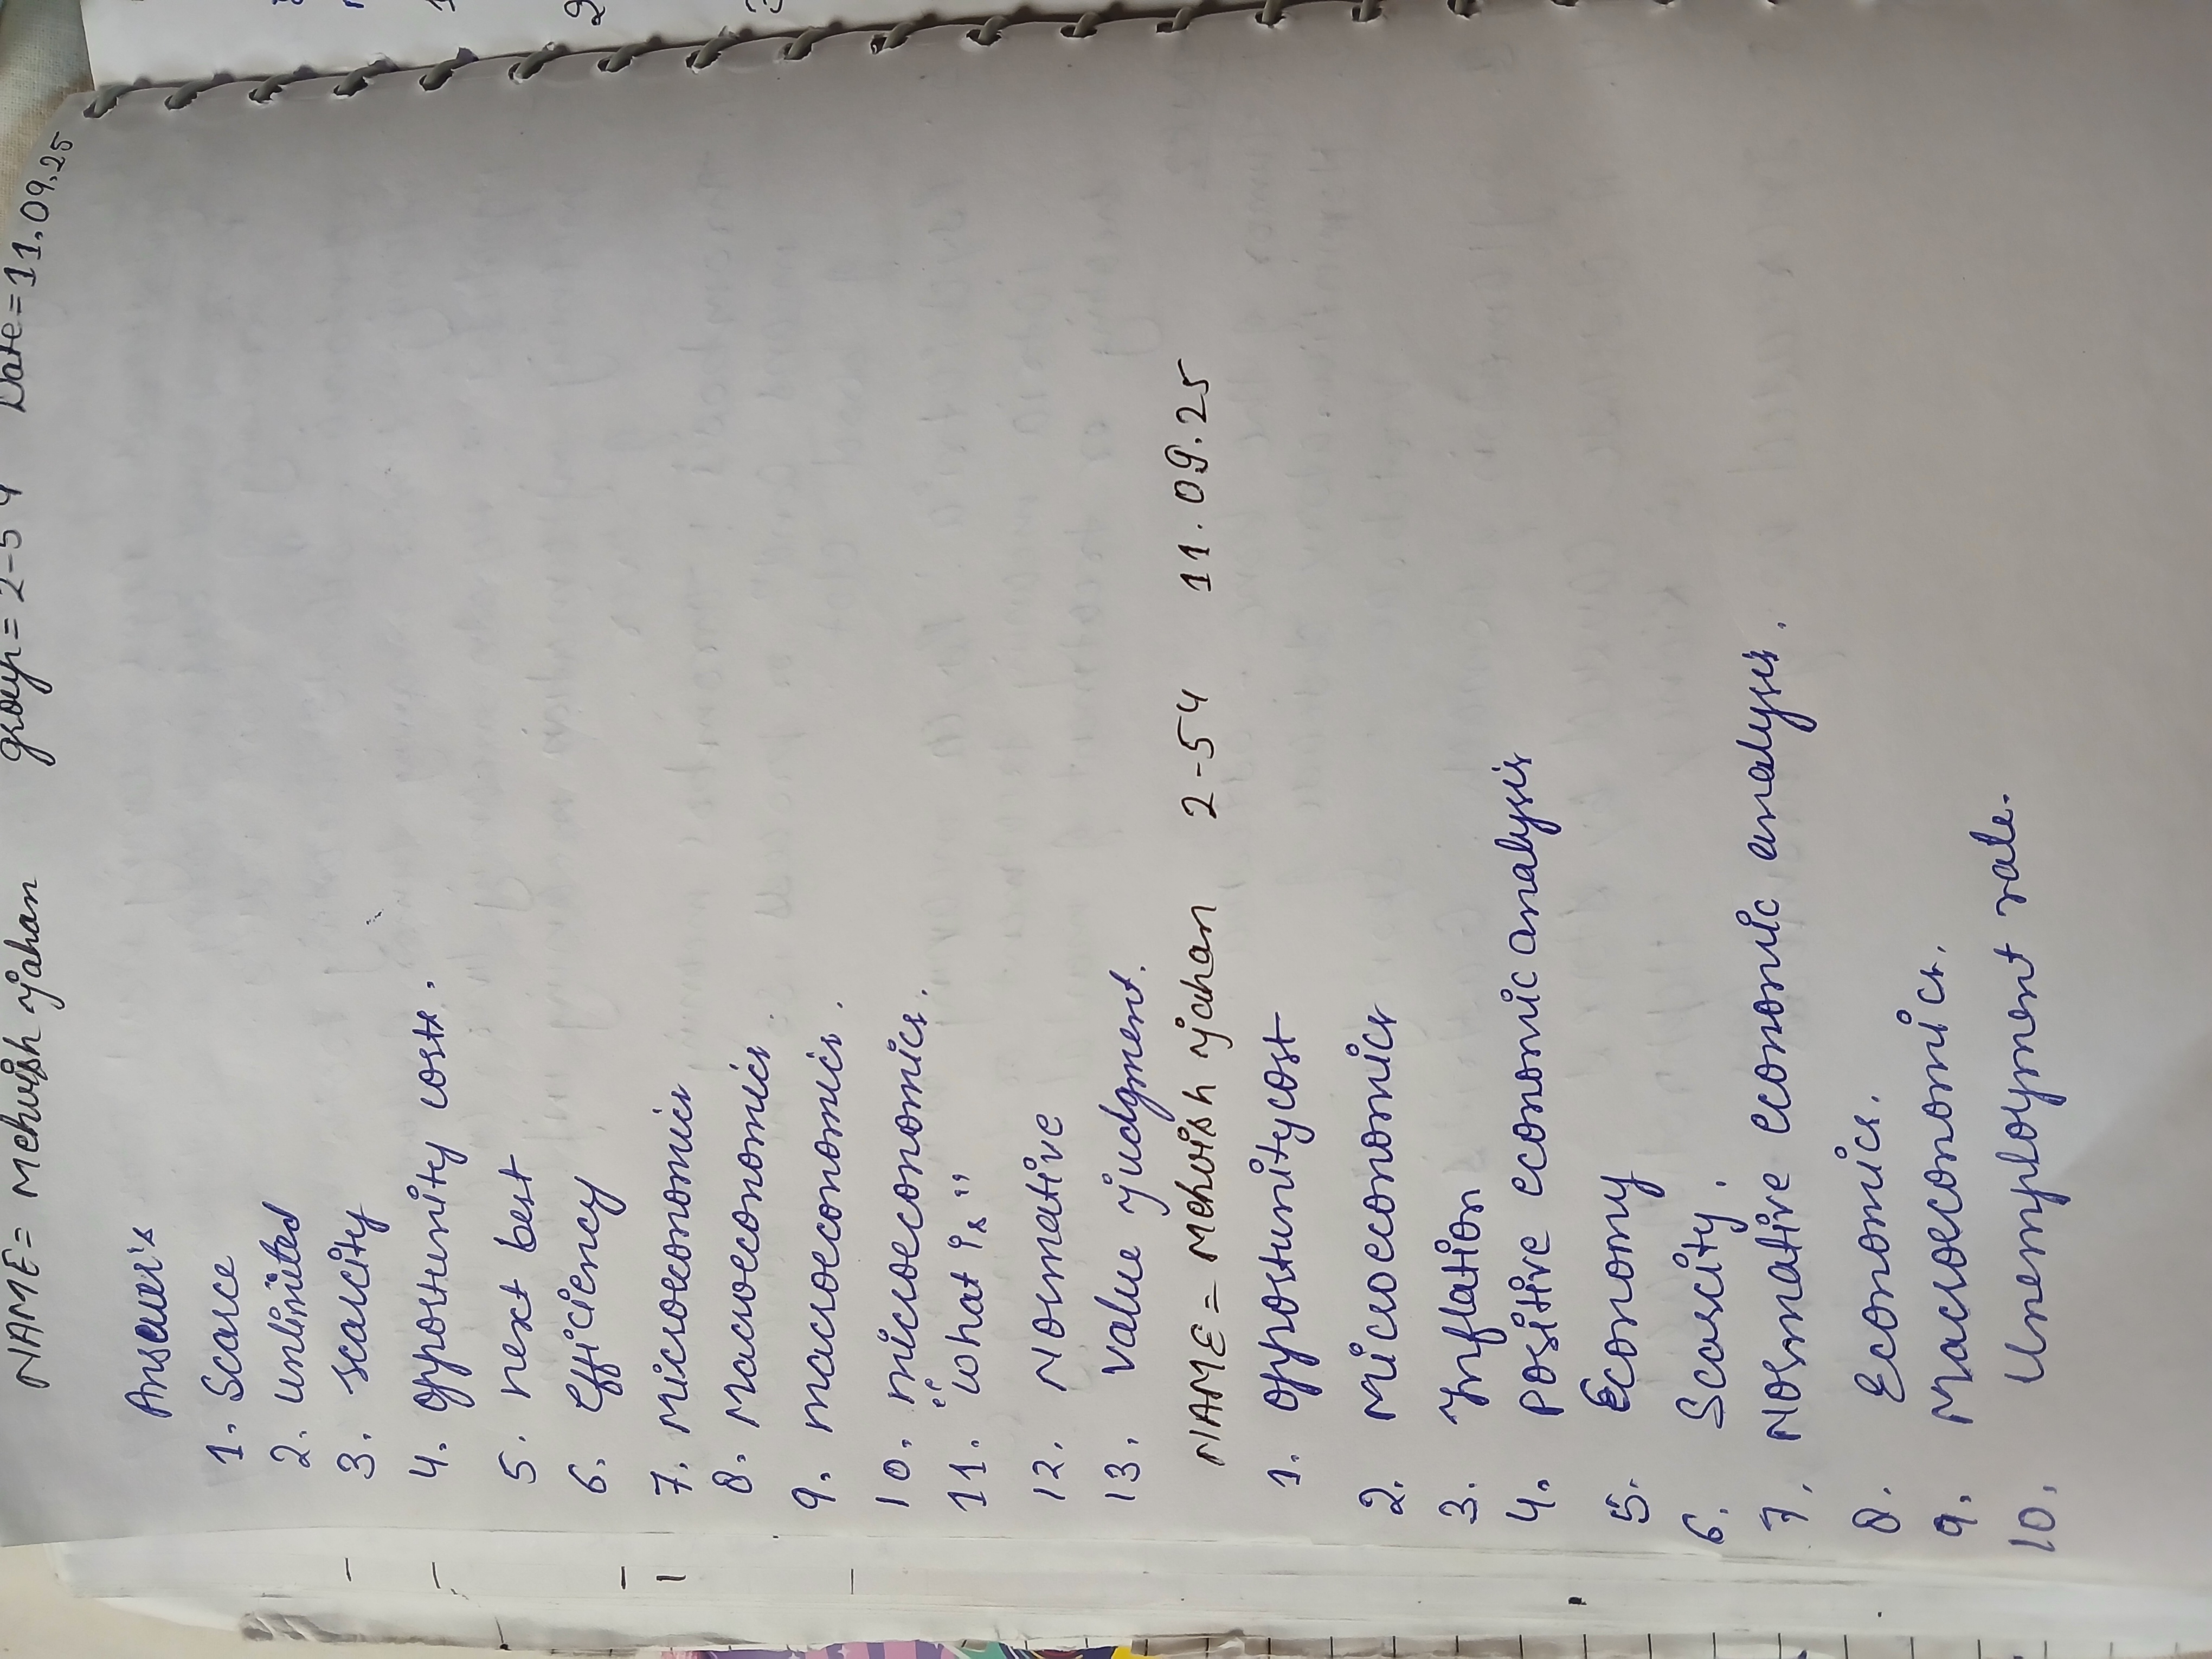 NAME = Mehwish Jahan group = 2-54 Date = 11.09.25
Answer's
1. Scarce
2. unlimited
3. scarcity
4. opportunity costs.
5. next best
6. Efficiency
7. Microeconomics
8. Macroeconomics.
9. macroeconomics.
10. microeconomics.
11. "what is"
12. Normative
13. value judgment.
NAME = Mehwish Jahan 2-54 11.09.25
1. opportunity cost
2. Microeconomics
3. Inflation
4. Positive economic analysis
5. Economy
6. Scarcity.
7. Normative economic analysis.
8. Economics.
9. Macroeconomics.
10. Unemployment rate.